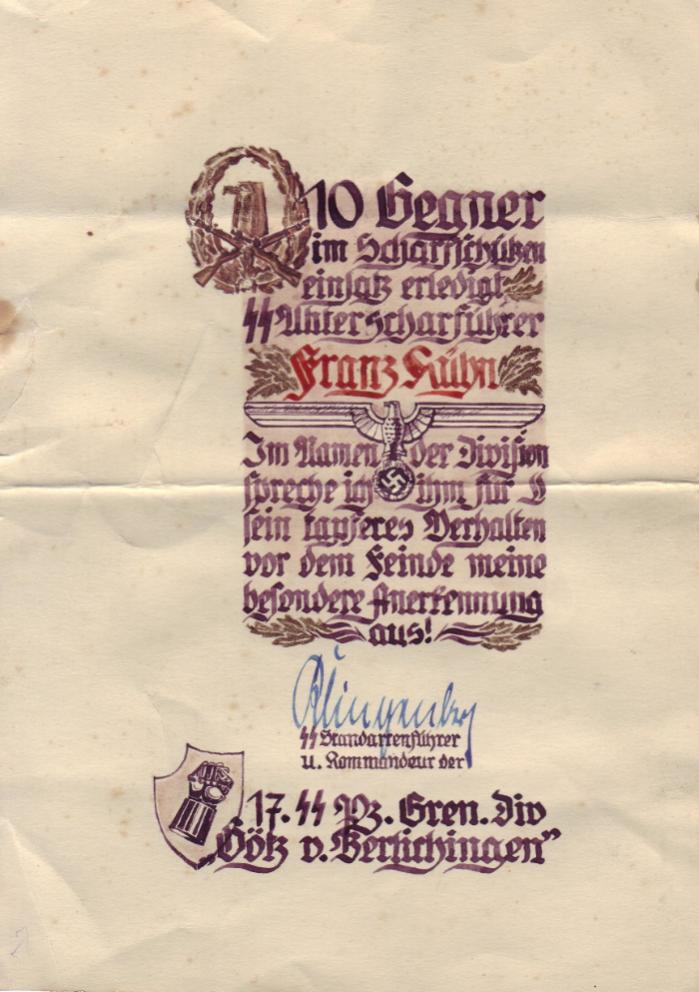 10 Gegner
im Scharfschützen
einsatz erledigt
SS Unterscharführer
Franz Kühn
Im Namen der Division
spreche ich ihm für
sein tapferes Verhalten
vor dem Feinde meine
besondere Anerkennung
aus!
Klingenberg
SS Standartenführer
u. Kommandeur der
17. SS Pz. Gren. Div
„Götz v. Berlichingen”